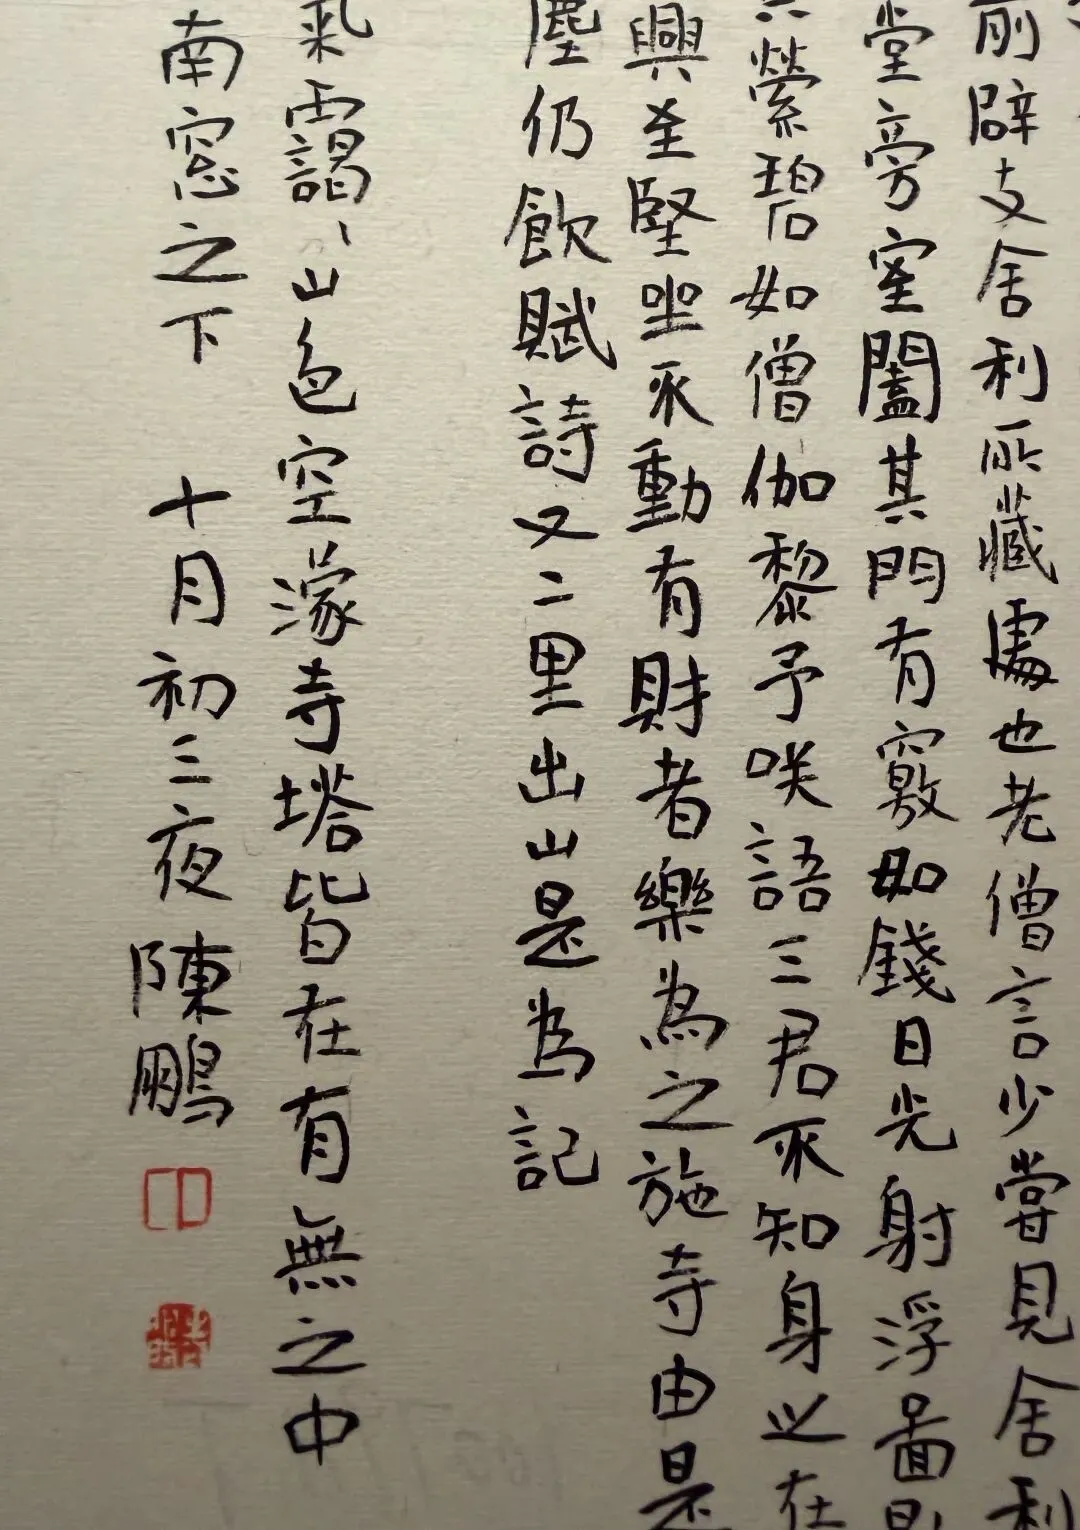 前辟支舍利所藏處也老僧言少嘗見舍利
堂旁室闔其門有竅如錢日光射浮圖則
縈碧如僧伽黎予咲語三君不知身之在
興至堅坐不動有財者樂為之施寺由是
塵仍飲賦詩又二里出山是為記
氣靄〻山色空濛寺塔皆在有無之中
南窓之下 十月初三夜 陳鵬